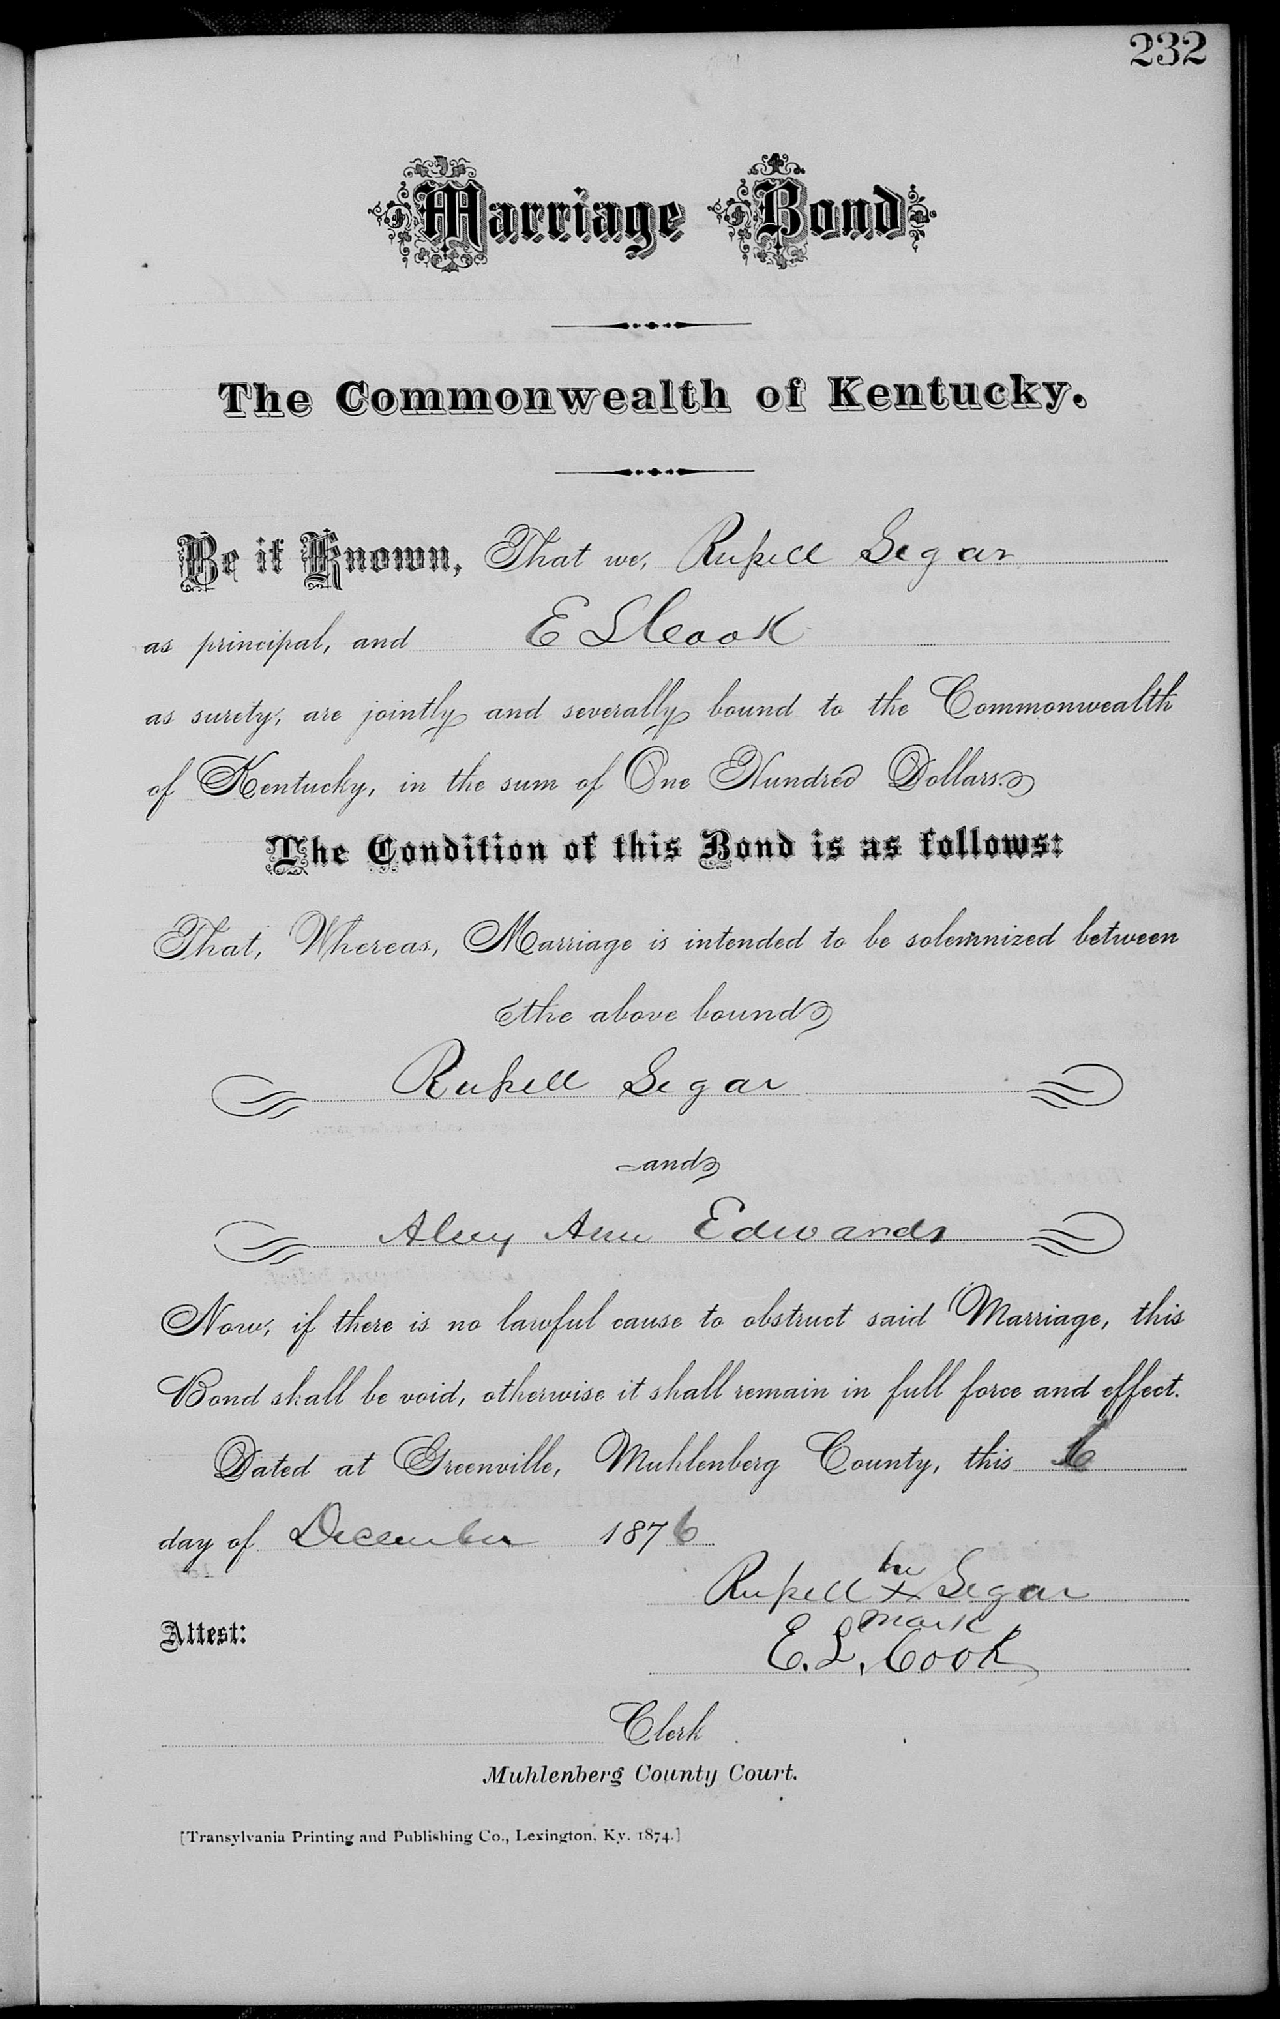 232
Marriage Bond
The Commonwealth of Kentucky.
Be it Known, That we, Russell Segar
as principal, and E S Cook
as surety, are jointly and severally bound to the Commonwealth
of Kentucky, in the sum of One Hundred Dollars.
The Condition of this Bond is as follows:
That, Whereas, Marriage is intended to be solemnized between
the above bound
Russell Segar
and
Ann Edwards
Now, if there is no lawful cause to obstruct said Marriage, this
Bond shall be void, otherwise it shall remain in full force and effect.
Dated at Greenville, Muhlenberg County, this 6
day of December 1876
his
Russell X Segar
mark
Attest:
E. L. Cook
Clerk
Muhlenberg County Court.
[Transylvania Printing and Publishing Co., Lexington, Ky. 1874.]